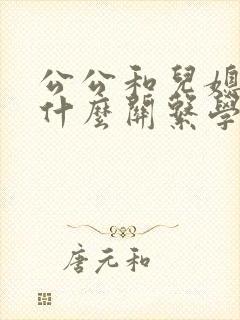 公公和兒媳
什麼關繫學
唐元和